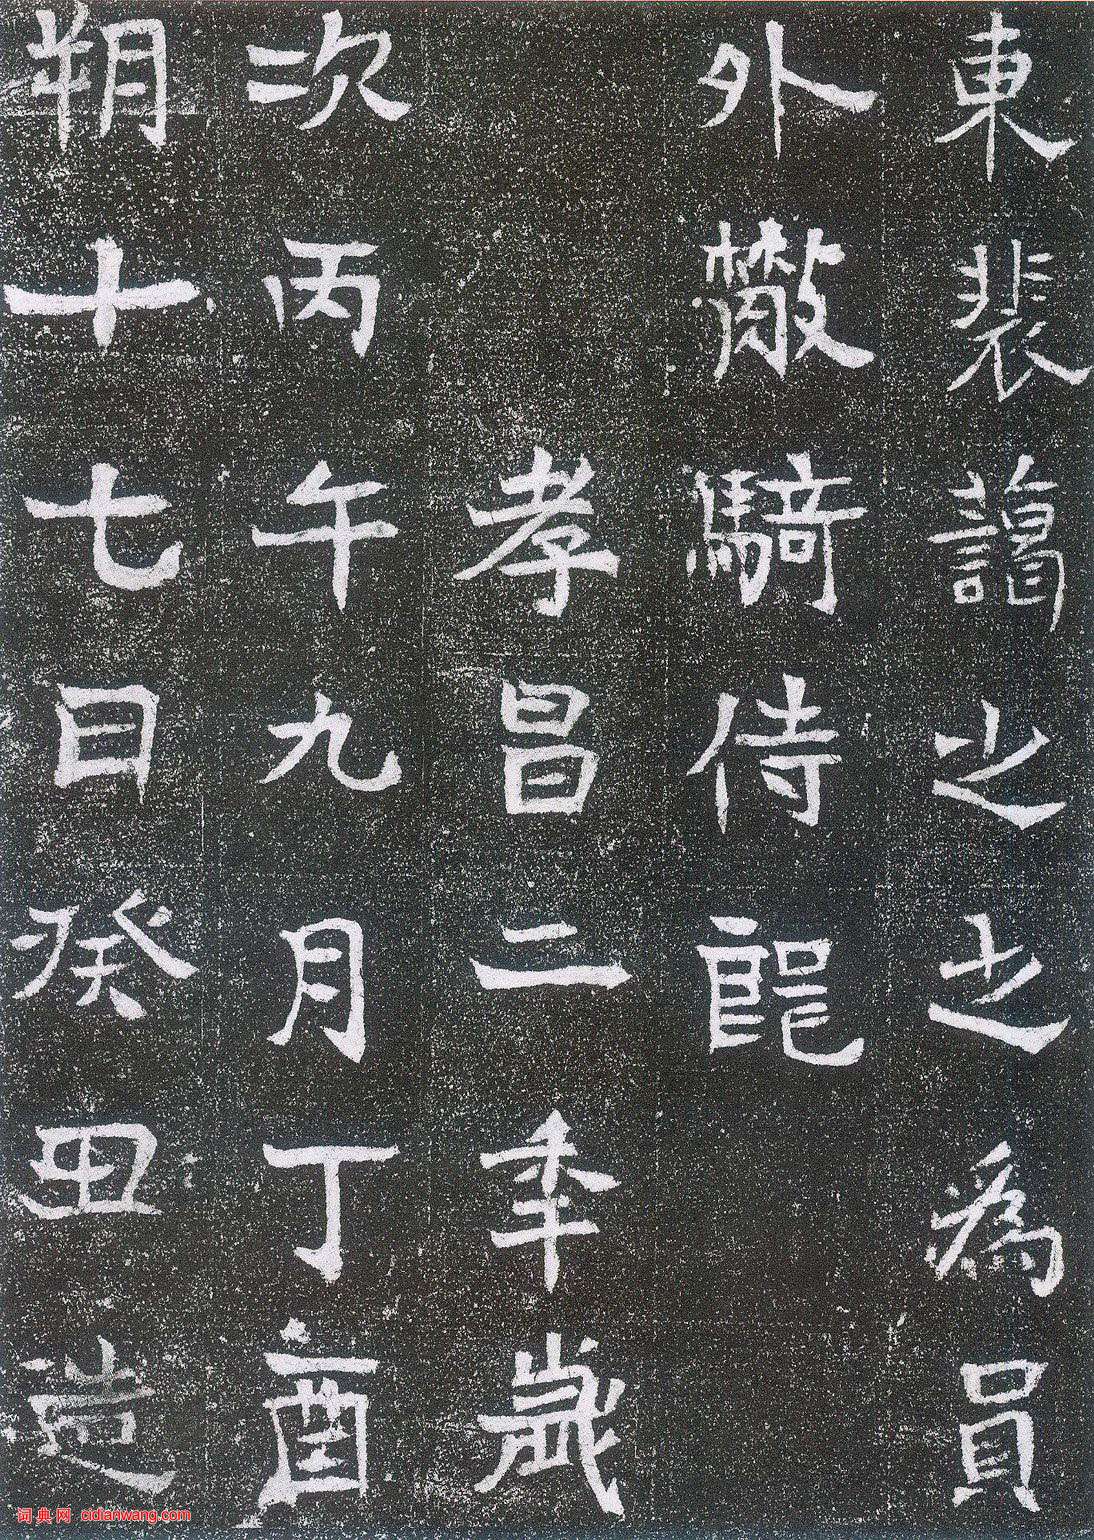 東裴藹之之爲員
外散騎侍郎
孝昌二年歲
次丙午九月丁酉
朔十七日癸丑造
词典网 cidianwang.com